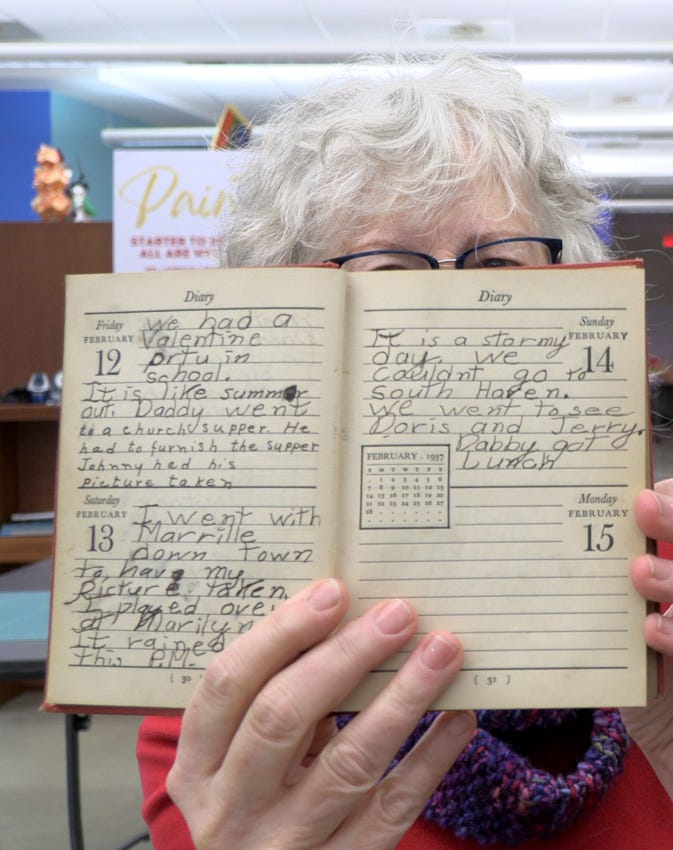 Pain
STARTER TO
ALL ARE WE
Diary
Friday
FEBRUARY
12
We had a
Valentine
prtu in
school.
It is like summer
out. Daddy went
to a church supper. He
had to furnish the supper
Johnny had his
picture taken
Saturday
FEBRUARY
13
I went with
Marrille
down town
to have my
picture taken.
I played over
at Marilyn
It rained
this P.M.
( 30 )
Diary
Sunday
FEBRUARY
14
It is a stormy
day. we
couldnt go to
South Haven.
we went to see
Doris and Jerry.
Dabby got
Lunch
FEBRUARY . 1937
S M T W T F S
. 1 2 3 4 5 6
7 8 9 10 11 12 13
14 15 16 17 18 19 20
21 22 23 24 25 26 27
28 . . . . . .
Monday
FEBRUARY
15
( 31 )